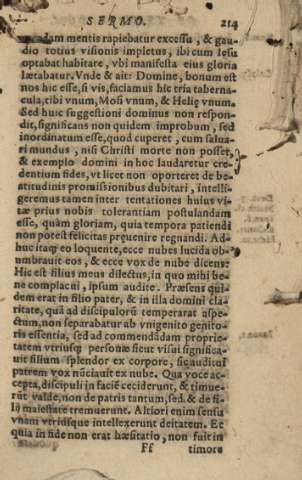 SERMO. 214
quodam mentis rapiebatur excessu, & gau-
dio totius visionis impletus, ibi cum Iesu
optabat habitare, vbi manifesta eius gloria
lætabatur. Vnde & ait: Domine, bonum est
nos hic esse, si vis, faciamus hic tria taberna-
cula, tibi vnum, Mosi vnum, & Helię vnum.
Sed huic suggestioni dominus non respon-
dit, significans non quidem improbum, sed
inordinatum esse, quod cuperet, cum salua-
ri mundus, nisi Christi morte non posset,
& exemplo domini in hoc laudaretur cre-
dentium fides, vt licet non oporteret de be-
atitudinis promissionibus dubitari, intelli-
geremus tamen inter tentationes huius vi-
tæ prius nobis tolerantiam postulandam
esse, quàm gloriam, quia tempora patiendi
non potest felicitas preuenire regnandi. Ad-
huc itaq; eo loquente, ecce nubes lucida ob-
umbrauit eos, & ecce vox de nube dicens:
Hic est filius meus dilectus, in quo mihi be-
ne complacui, ipsum audite. Præsens qui-
dem erat in filio pater, & in illa domini cla-
ritate, quã ad discipulorũ temperarat aspe-
ctum, non separabatur ab vnigenito genito-
ris essentia, sed ad commẽdadam proprie-
tatem vtriusq; personæ sicut visui significa-
uit filium splendor ex corpore, sic auditui
patrem vox nũciauit ex nube. Qua voce ac-
cepta, discipuli in faciẽ ceciderunt, & timue-
rũt valde, non de patris tantum, sed & de fi-
lij maiestate tremuerunt. Altiori enim sensu
vnam vtriusque intellexerunt deitatem. Et
quia in fide non erat hæsitatio, non fuit in
Ff timore